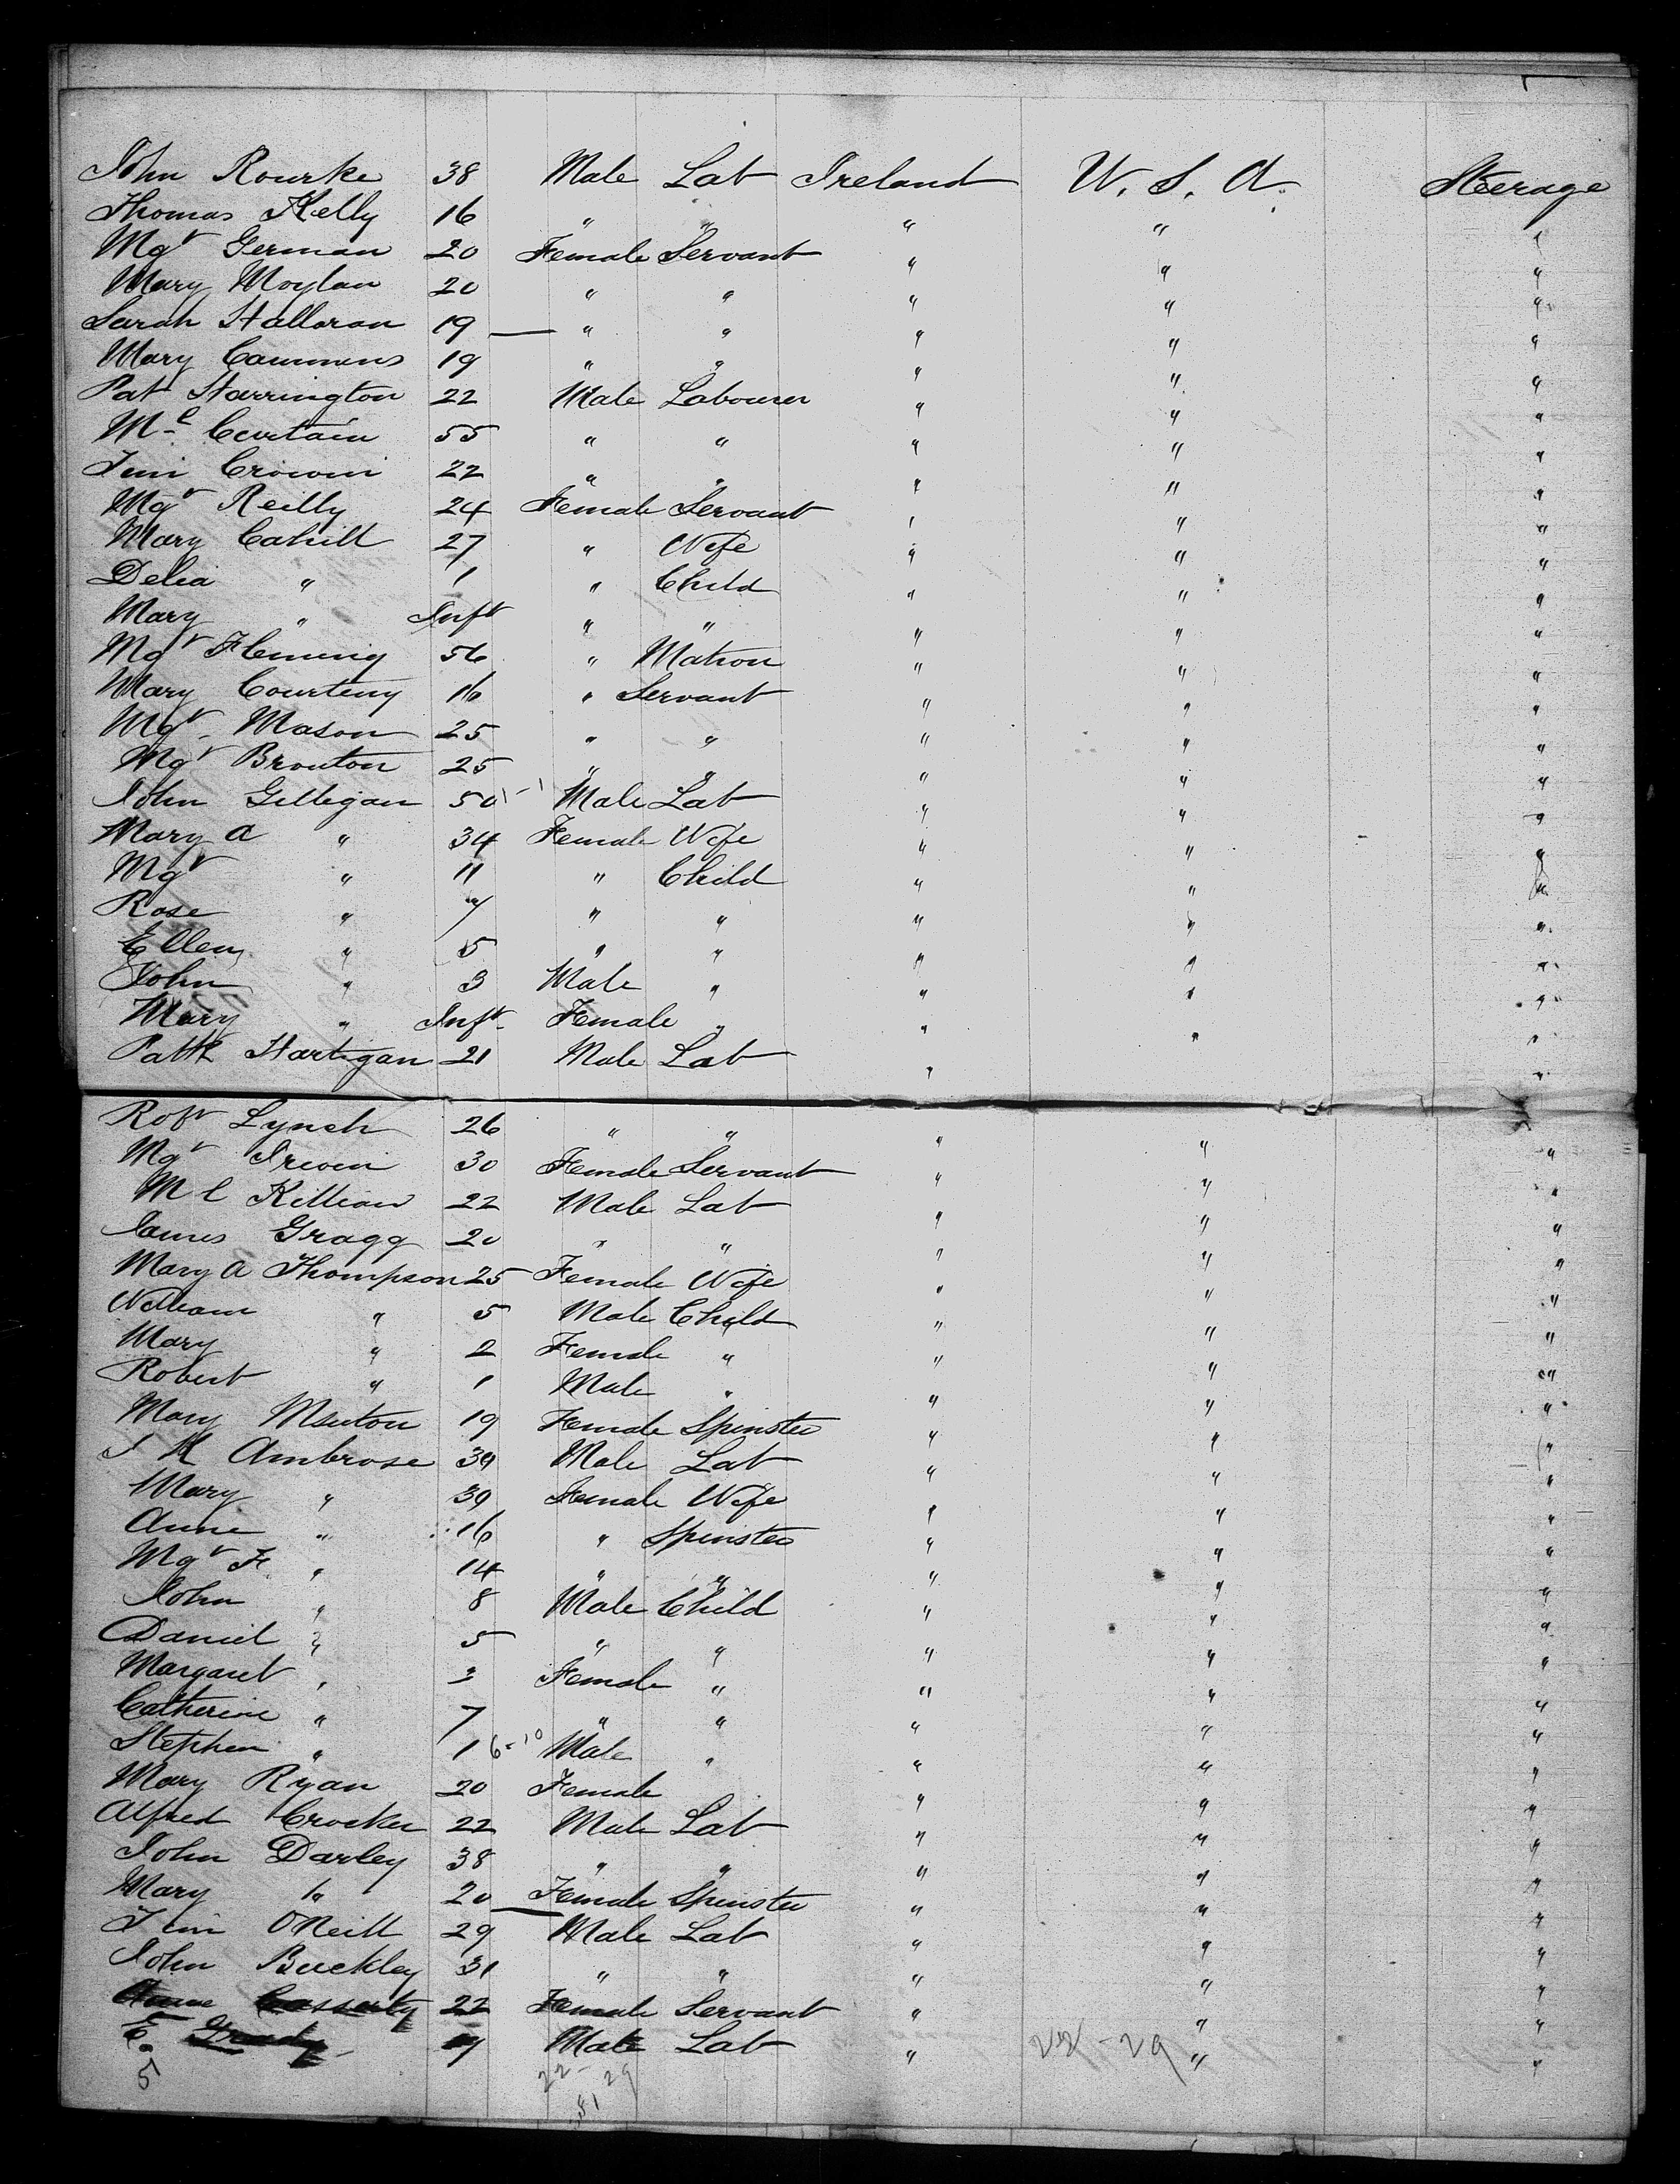 John Rourke 38 Male Lab Ireland U. S. A. Steerage
Thomas Kelly 16 " " " " "
Mgt German 20 Female Servant " " "
Mary Moylan 20 " " " " "
Sarah Halloran 19 — " " " " "
Mary Commens 19 " " " " "
Pat Harrington 22 Male Labourer " " "
Ml Curtain 55 " " " " "
Tim 22 " " " " "
Mgt Reilly 24 Female Servant " " "
Mary Cahill 27 " Wife " " "
Delia " 1 " Child " " "
Mary " Inft " " " " "
Mgt Fleming 56 " Matron " " "
Mary Courteny 16 " Servant " " "
Mgt Mason 25 " " " " "
Mgt Brouton 25 " " " " "
John Gilligan 50 Male Lab " " "
Mary A " 34 Female Wife " " "
Mgt " 11 " Child " " "
Rose " 7 " " " " "
Ellen " 5 " " " " "
John " 3 Male " " " "
Mary " Inft Female " " " "
Patk Hartigan 21 Male Lab " " "
Robt Lynch 26 " " " " "
Mgt Irwin 30 Female Servant " " "
Ml Killian 22 Male Lab " " "
James Gragg 20 " " " " "
Mary A Thompson 25 Female Wife " " "
William " 5 Male Child " " "
Mary " 2 Female " " " "
Robert " 1 Male " " " "
Mary 19 Female Spinster " " "
Ambrose 39 Male Lab " " "
Mary " 39 Female Wife " " "
Anne " 16 " Spinster " " "
Mgt F " 14 " " " " "
John " 8 Male Child " " "
Daniel " 5 " " " " "
Margaret " 3 Female " " " "
Catherine " 7 " " " " "
Stephen " 1 6-10 Male " " " "
Mary Ryan 20 Female " " "
Alfred Crocker 22 Male Lab " " "
John Darley 38 " " " " "
Mary " 20 Female Spinster " " "
Tim ONeill 29 Male Lab " " "
John Buckley 31 " " " " "
Anne Casserty 22 Female Servant " " "
E. Grady Male Lab " 22-29 " "
5 22-29